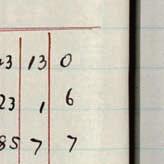 3 | 13 | 0
23 | 1 | 6
85 | 7 | 7